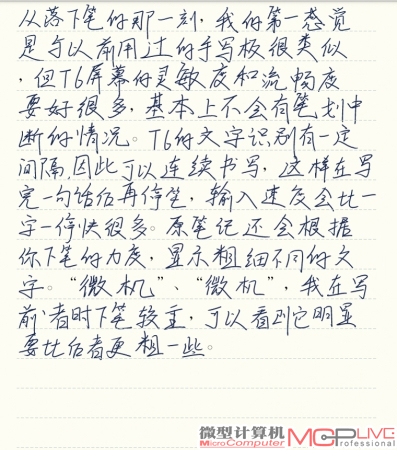 从落下笔的那一刻，我的第一感觉
是与以前用过的手写板很类似
，但T6屏幕的灵敏度和流畅度
要好很多，基本上不会有笔划中
断的情况。T6的文字识别有一定
间隔，因此可以连续书写，这样在写
完一句话后再停笔，输入速度会比一
字一停快很多。原笔纪还会根据
你下笔的力度，显示粗细不同的文
字。“微机”、“微机”，我在写
前者时下笔较重，可以看到它明显
要比后者更粗一些。
微型计算机
MicroComputer
MCPLIVE
Professional